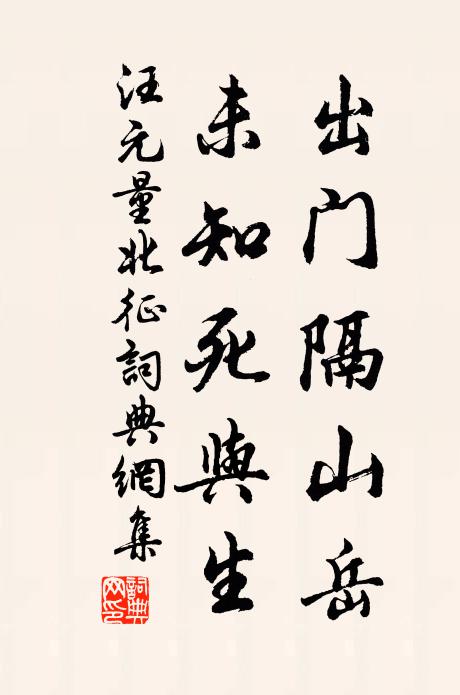 出门隔山岳
未知死與生
汪元量北征詞典網集
詞典网印